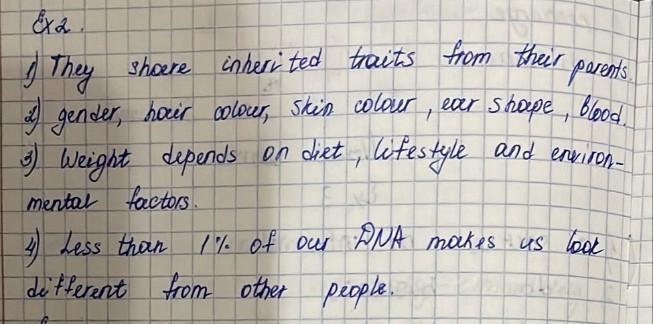 Ex2.
1) They share inherited traits from their parents.
2) gender, hair colour, skin colour, ear shape, blood.
3) Weight depends on diet, lifestyle and environ-
mental factors.
4) Less than 1% of our DNA makes us look
different from other people.